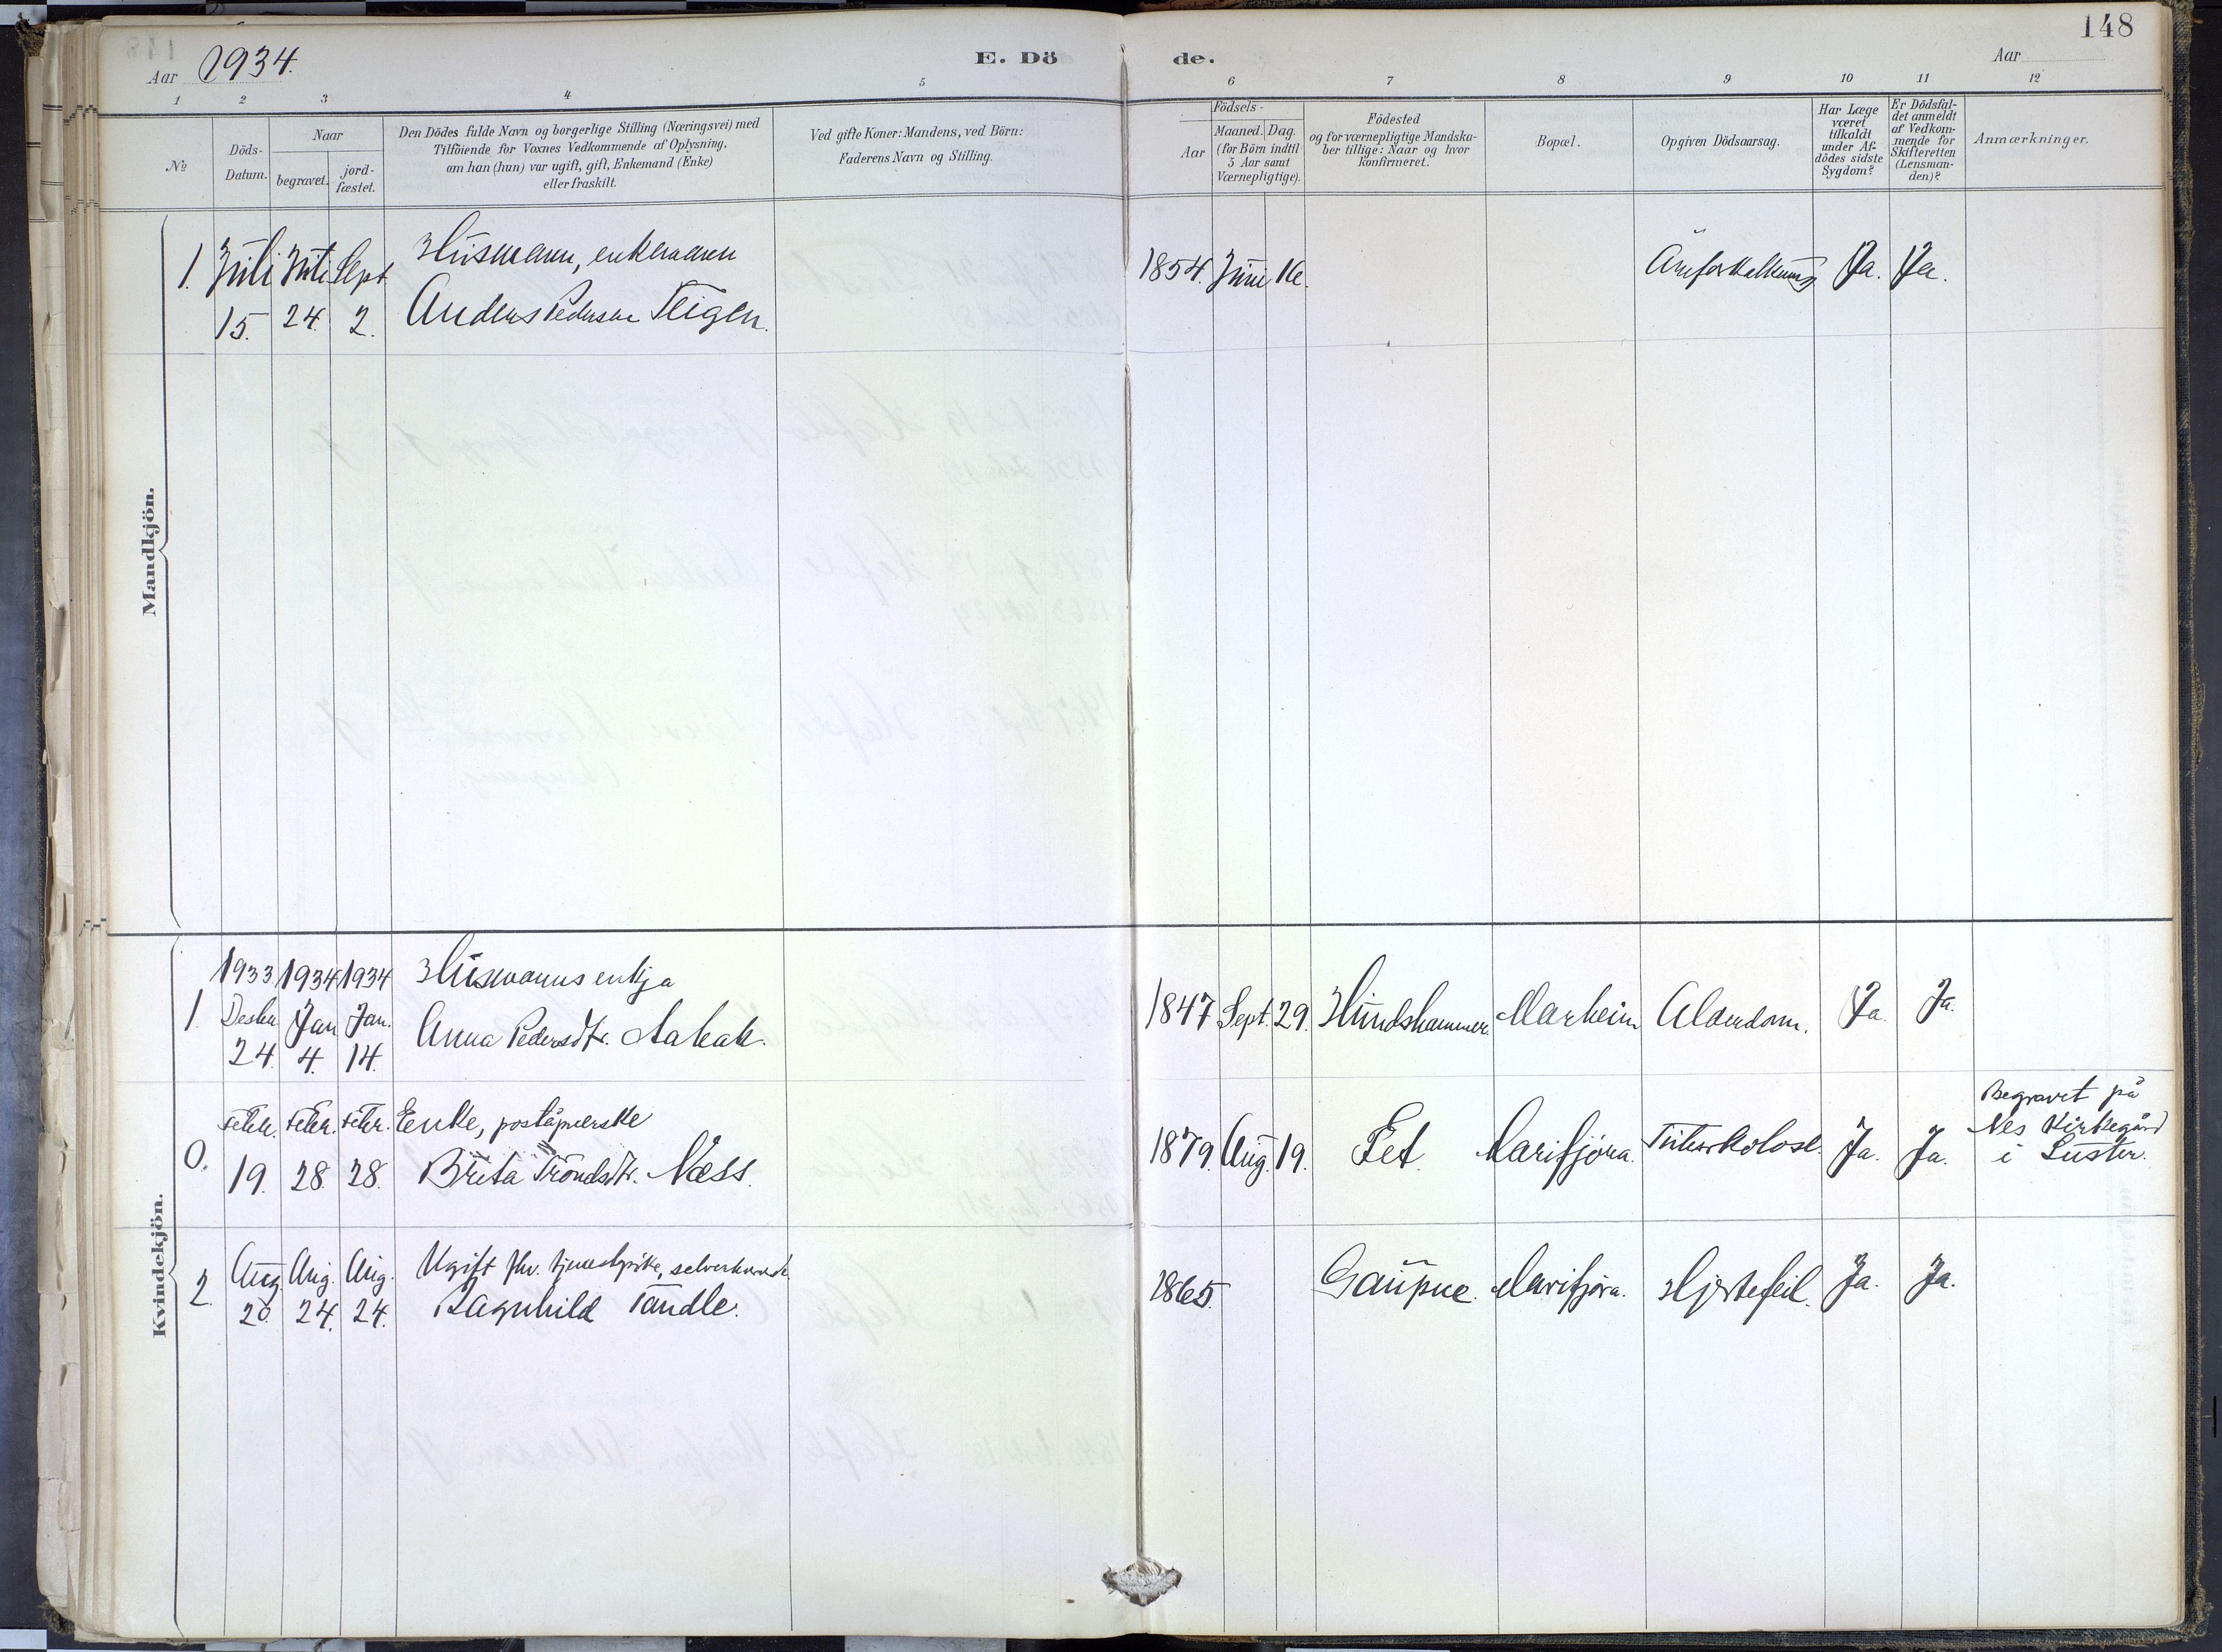 148
Aar 1934.
E. Dö de.
Aar
1 2 3 4 5 6 7 8 9 10 11 12
№
Döds-Datum.
Naar
begravet.
jord-fæstet.
Den Dödes fulde Navn og borgerlige Stilling (Næringsvei) med
Tilföiende for Voxnes Vedkommende af Oplysning,
om han (hun) var ugift, gift, Enkemand (Enke)
eller fraskilt.
Ved gifte Koner: Mandens, ved Börn:
Faderens Navn og Stilling.
Födsels-
Aar
Maaned. Dag.
(for Börn indtil
5 Aar samt
Værnepligtige).
Födested
og for værnepligtige Mandska-
ber tillige: Naar og hvor
konfirmeret.
Bopæl.
Opgiven Dödsaarsag.
Har Læge
været
tilkaldt
under Af-
dödes sidste
Sygdom?
Er Dödsfal-
det anmeldt
af Vedkom-
mende for
Skifteretten
(Lensman-
den)?
Anmærkninger.
Mandkjön.
1. Juli Juli Sept. Husmann, enkemann 1854. Juni 16. Åreforkalkning Ja. Ja.
15. 24. 2. Anders Pedersen Teigen.
Kvindekjön.
1933 1934 1934 Husmanns enkja
1. Desbr. Jan. Jan. Anna Pedersdtr. 1847 Sept. 29. Hundshammer. Marheim Alderdom. Ja. Ja.
24. 4. 14.
Febr. Febr. Febr. Enke, poståpnerske Begravet på
0. 1879. Aug. 19. Fet. Marifjøra. Tuberkolose. Ja. Ja. Nes Kirkegård
19. 28. 28. Brita Tröndsdtr. Næss. i Luster.
2. Aug. Aug. Aug. Ugift fhv. tjenestpike, 1865. Gaupne. Marifjøra. Hjertefeil. Ja. Ja.
20. 24. 24. Ragnhild Tandle.